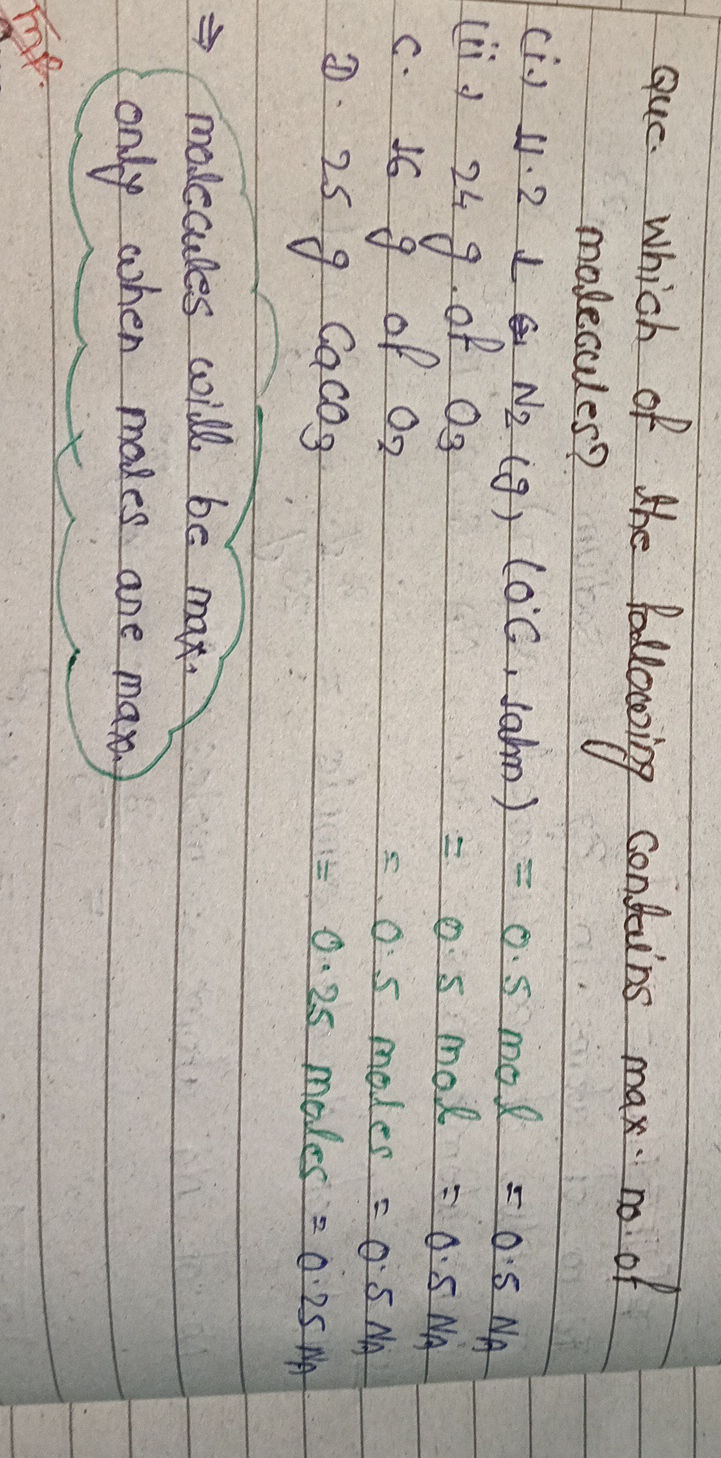 Que. which of the following contains max. no. of
molecules?
(i.) 11.2 L N2 (g) (0°C, 1atm) = 0.5 mol = 0.5 NA
(ii.) 24 g. of O3 = 0.5 mol = 0.5 NA
C. 16 g of O2 = 0.5 moles = 0.5 NA
D. 25 g CaCO3 = 0.25 moles = 0.25 NA
⇒ molecules will be max.
only when moles are max.
Imp.